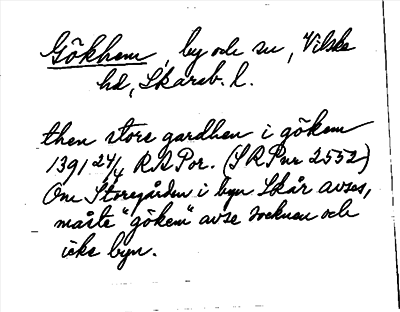 Gökhem, by och sn, Vilske
hd, Skarab. l.
then store gardhen i gökem
1391 24/4 RA Por. (SRPnr 2552)
Om Storegården i byn Skår avses,
måste "gökem" avse socknen och
icke byn.